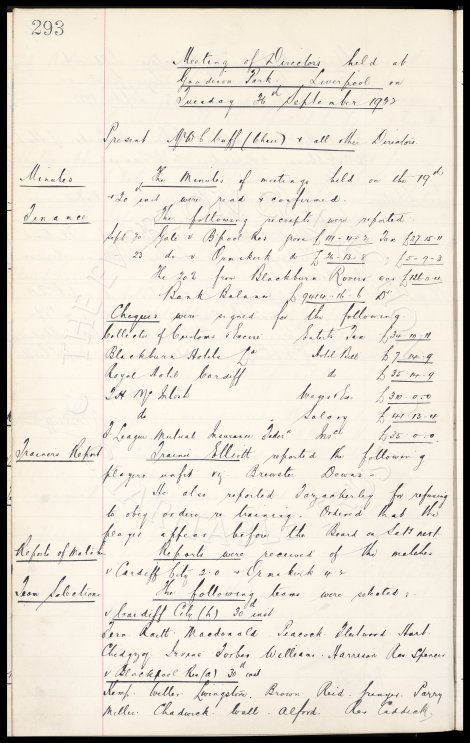 293
Meeting of Directors held at
Goodison Park. Liverpool on
Tuesday 26th September 1922
Present Mr W C Cuff (Chair) & all other Directors.
Minutes The Minutes of meetings held on the 19th
& 20 inst were read & confirmed.
Finance The following receipts were reported
Sept 20 Gate v B'pool Res gross £111-4-2 Tax £27-15-11
23 do v Ormskirk do £26-13-8 £5-9-3
The 20% from Blackburn Rovers was £121-0-11
Bank Balance £9414-16-6 Dr
Cheques were signed for the following
Collector of Customs & Excise Entertts Tax £34-10-11
Blackburn Hotels Co Hotel Bill £7-14-9
Royal Hotel Cardiff do £35-14-9
T. H. McIntosh Wages &c £310-0-0
do Salary £41-13-4
F League Mutual Insurance Feder'n Insce £35-0-0
Trainers Report Trainer Elliott reported the following
players unfit viz Brewster Downs
He also reported for refusing
to obey orders re training. Ordered that the
player appear before the Board on next
Reports of Matches Reports were received of the matches
v Cardiff City 2-0 & Ormskirk 4-2
Team Selections The following teams were selected:
v Cardiff City (h) 30th inst
Fern Raitt Macdonald Peacock Fleetwood Hart
Chedgzoy Irvine Forbes Williams Harrison Res Spencer
v Blackpool Res (a) 30th inst
Kemp. Weller Livingstone. Brown Reid. Parry
Miller Chadwick Wall. Alford. Res Caddick